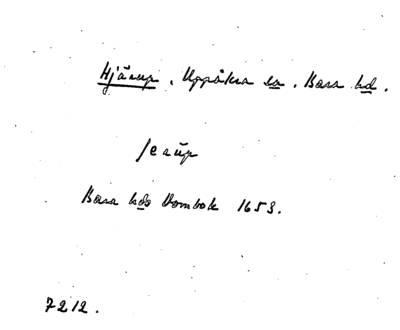 Hjärup, Uppåkra sn, Bara hd.
Jerŭp
Bara hds Dombok 1653.
7212.